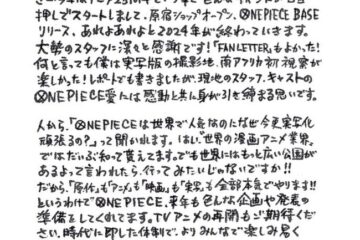 押しでスタートしまして、原宿ショップオープン、ONE PIECE BASE
リリース、あれよあれよと2024年が終わっていきます。
大勢のスタッフに深々と感謝です!「FAN LETTER」もよかった!
何と言っても僕は実写版の撮影地、南アフリカ初視察が
楽しかった!レポートでも書きましたが、現地のスタッフ、キャストの
ONE PIECE愛には感動と共に身が引き締まる思いです。
人から、「ONE PIECEは世界で人気なのになぜ今更実写化
頑張るの?」って聞かれます。はい。"世界の漫画アニメ業界"
ではだいぶ知って貰えてます。でも世界にはもっと広い公園が
あるよって言われたら、行ってみたいじゃないですか!!
だから、「原作」も「アニメ」も「映画」も「実写」も全部本気でやります!!
というわけでONE PIECE、来年も色んな企画や発表の
準備をしてくれてます。TVアニメの再開もご期待くだ
さい。時代に即した体制で、よりみんなで楽しみ暑く